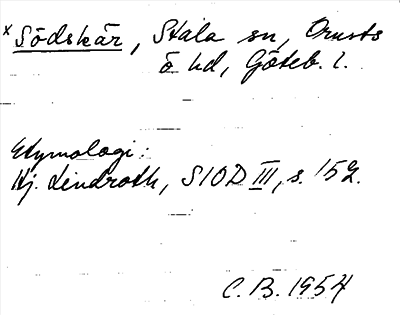 x Södskär, Stala sn, Orusts
ö hd, Göteb. l.
Etymologi:
Hj. Lindroth, SIOD III, s. 152.
C. B. 1954